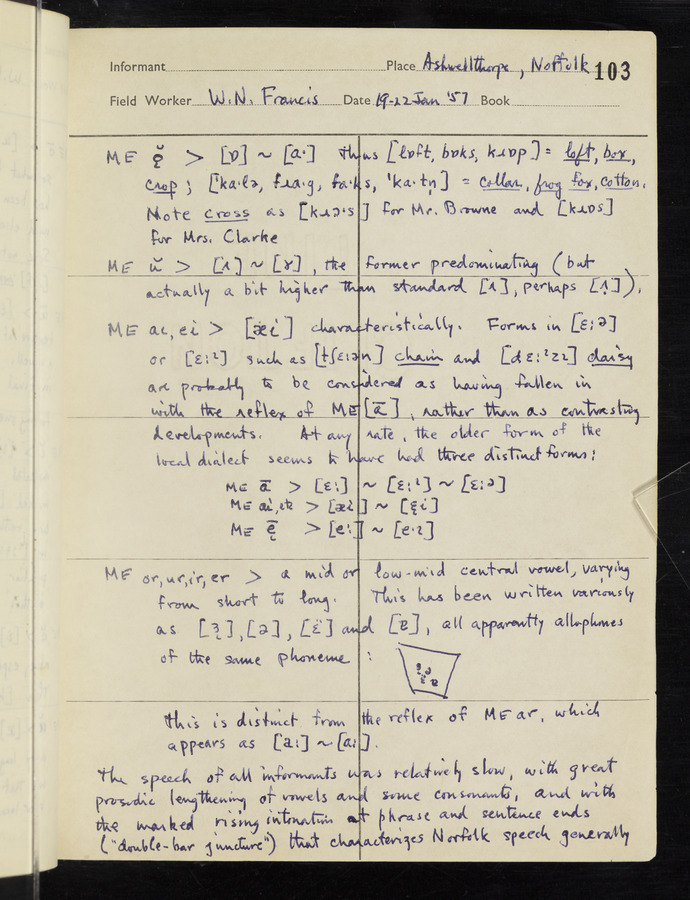 Informant Place Ashwellthorpe, Norfolk 103
Field Worker W.N. Francis Date 19-22 Jan '57 Book
ME ǭ̆ > [ɒ] ~ [aˑ] thus [lɒft, bɒks, kɹɒp] = loft, box,
crop; [kaˑlə, fɹaˑg, faˑks, 'kaˑtn̩] = collar, frog fox, cotton.
Note cross as [kɹɔˑs] for Mr. Browne and [kɹɒs]
for Mrs. Clarke
ME ŭ > [ʌ] ~ [ɤ], the former predominating (but
actually a bit higher than standard [ʌ], perhaps [ʌ̝]).
ME ai, ei > [æi] characteristically. Forms in [ɛːə]
or [ɛːᶦ] such as [tʃɛːən] chain and [dɛːᶦzɪ] daisy
are probably to be considered as having fallen in
with the reflex of ME [ā], rather than as contrasting
developments. At any rate, the older form of the
local dialect seems to have had three distinct forms:
ME ā > [ɛː] ~ [ɛːᶦ] ~ [ɛːə]
ME ai, etc > [æi] ~ [ɛ̞i]
ME ę̄ > [eː] ~ [eˑɪ]
ME or, ur, ir, er > a mid or low-mid central vowel, varying
from short to long. This has been written variously
as [ɜ], [ə], [ɛ̈] and [ɐ], all apparently allophones
of the same phoneme:
This is distinct from the reflex of ME ar, which
appears as [aː] ~ [ɑː].
The speech of all informants was relatively slow, with great
prosodic lengthening of vowels and some consonants, and with
the marked rising intonation at phrase and sentence ends
("double-bar juncture") that characterizes Norfolk speech generally